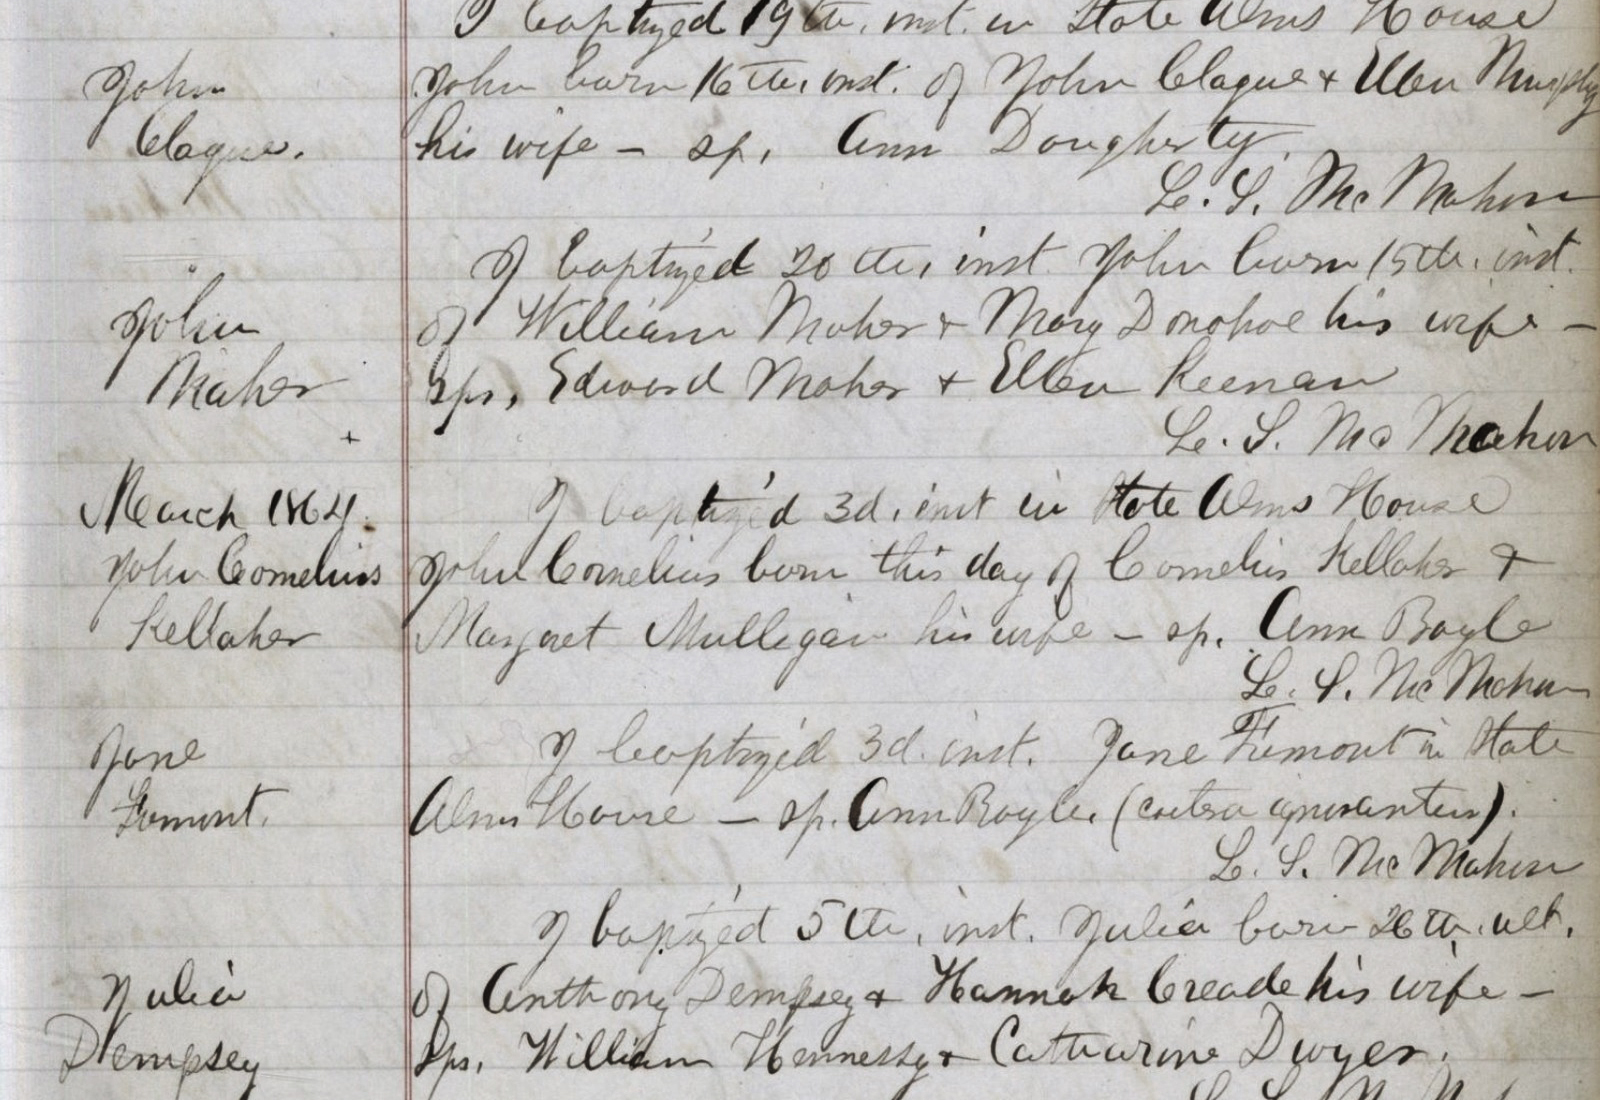 I baptized 19th. inst. in State Alms House
John born 16th. inst. of John Clague & Ellen Murphy
John
Clague.
his wife – sp. Ann Dougherty.
L. S. McMahon
I baptized 20th. inst. John born 15th. inst.
John
of William Maher & Mary Donohoe his wife –
Maher
Sps. Edward Maher & Ellen Keenan
+
L. S. McMahon
March 1864.
I baptized 3d. inst in State Alms House
John Cornelius
John Cornelius born this day of Cornelius Kellaher &
Kellaher
Margaret Mulligan his wife – sp. Ann Boyle
L. S. McMahon
Jane
I baptized 3d. inst. Jane Fremont in State
Fremont.
Alms House – sp. Ann Boyle. (
L. S. McMahon
I baptized 5th. inst. Julia born 26th. ult.
Julia
of Anthony Dempsey & Hannah Creade his wife –
Dempsey
Sps. William Hennessy & Catharine Dwyer.